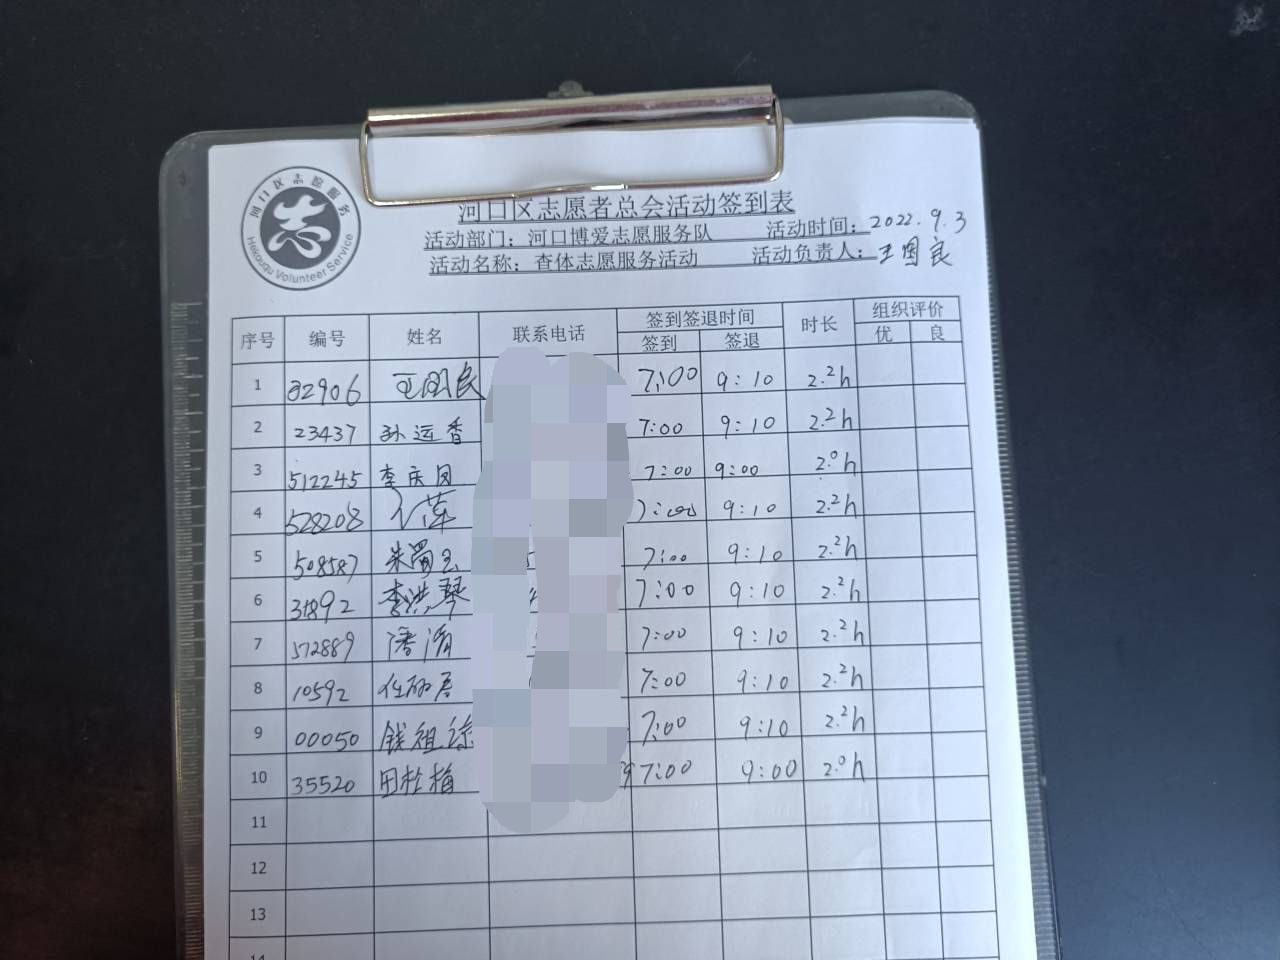 河口区志愿服务
Hekouqu Volunteer Service
河口区志愿者总会活动签到表
活动部门：河口博爱志愿服务队 活动时间：2022.9.3
活动名称：查体志愿服务活动 活动负责人：王国良
序号 编号 姓名 联系电话 签到签退时间 时长 组织评价
签到 签退 优 良
1 32906 王国良 7:00 9:10 2.2h
2 23437 孙运香 7:00 9:10 2.2h
3 512245 李庆 7:00 9:00 2.0h
4 528208 7:00 9:10 2.2h
5 508587 朱 玉 7:00 9:10 2.2h
6 31892 李洪琴 7:00 9:10 2.2h
7 512889 潘 7:00 9:10 2.2h
8 10592 任 7:00 9:10 2.2h
9 00050 钱祖 7:00 9:10 2.2h
10 35520 田梅 7:00 9:00 2.0h
11
12
13
14